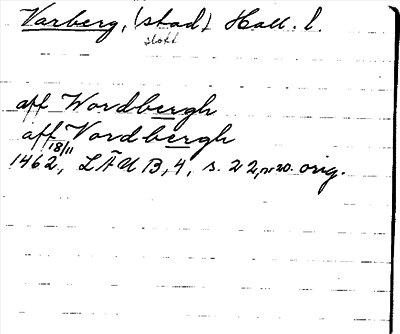 Varberg, (stad) Hall. l.
slott
aff Wordbergh
aff Vordbergh
18/11
1462, LÄU B, 4, s. 22, nr 20. orig.